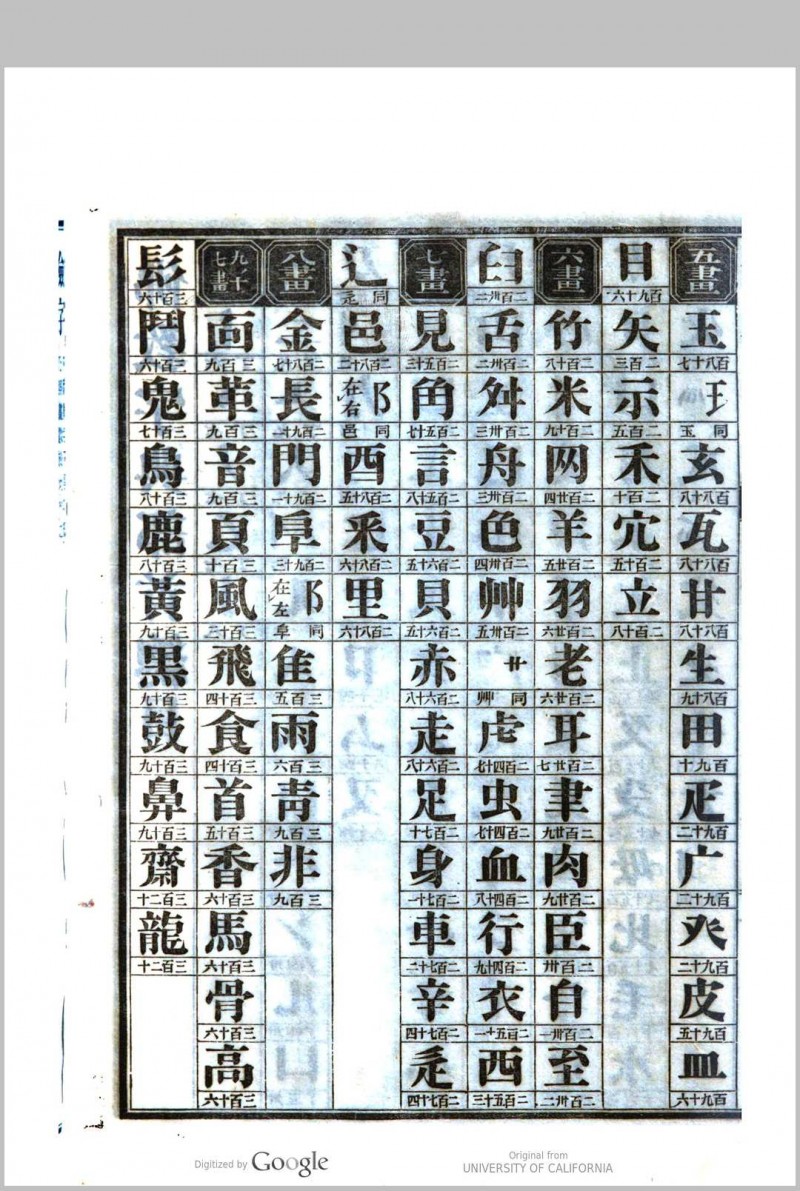 五畫
玉 百八十七
𤣩 同玉
玄 百八十八
瓦 百八十八
甘 百八十八
生 百八十九
田 百九十
疋 百九十二
疒 百九十二
癶 百九十二
皮 百九十五
皿 百九十六
目 百九十六
矢 二百三
示 二百五
禾 二百十
穴 二百十五
立 二百十八
六畫
竹 二百十八
米 二百十九
网 二百廿四
羊 二百廿五
羽 二百廿六
老 二百廿六
耳 二百廿七
聿 二百廿九
肉 二百廿九
臣 二百卅
自 二百卅一
至 二百卅二
臼 二百卅二
舌 二百卅二
舛 二百卅三
舟 二百卅三
色 二百卅四
艸 二百卅五
艹 同艸
虍 二百四十七
虫 二百四十七
血 二百四十八
行 二百四十九
衣 二百五十一
襾 二百五十三
七畫
見 二百五十三
角 二百五十七
言 二百五十八
豆 二百六十五
貝 二百六十五
赤 二百六十八
走 二百六十八
足 二百七十
身 二百七十一
車 二百七十二
辛 二百七十四
辵 二百七十四
辶 同辵
邑 二百八十二
阝 在右 同邑
酉 二百八十五
釆 二百八十六
里 二百八十六
八畫
金 二百八十七
長 二百九十一
門 二百九十一
阜 二百九十三
阝 在左 同阜
隹 三百五
雨 三百六
靑 三百九
非 三百九
九、十七畫
面 三百九
革 三百九
音 三百九
頁 三百十
風 三百十三
飛 三百十四
食 三百十四
首 三百十五
香 三百十六
馬 三百十六
骨 三百十六
高 三百十六
髟 三百十六
鬥 三百十六
鬼 三百十七
鳥 三百十八
鹿 三百十八
黃 三百十九
黑 三百十九
鼓 三百十九
鼻 三百十九
齋 三百二十
龍 三百二十
檢字
Digitized by Google
Original from
UNIVERSITY OF CALIFORNIA